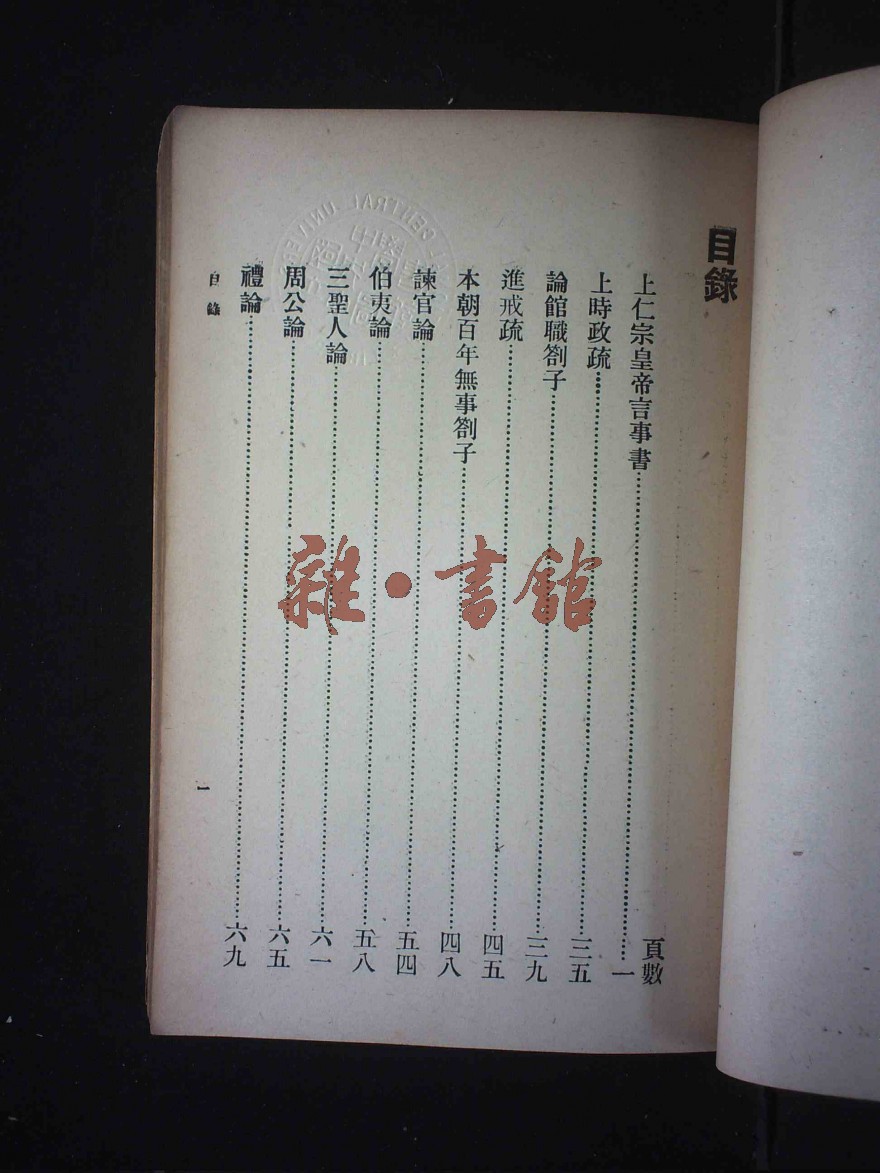 目錄
頁數
上仁宗皇帝言事書……一
上時政疏……三五
論館職劄子……三九
進戒疏……四五
本朝百年無事劄子……四八
諫官論……五四
伯夷論……五八
三聖人論……六一
周公論……六五
禮論……六九
目錄
一
雜·書館
CENTRAL UNIVE